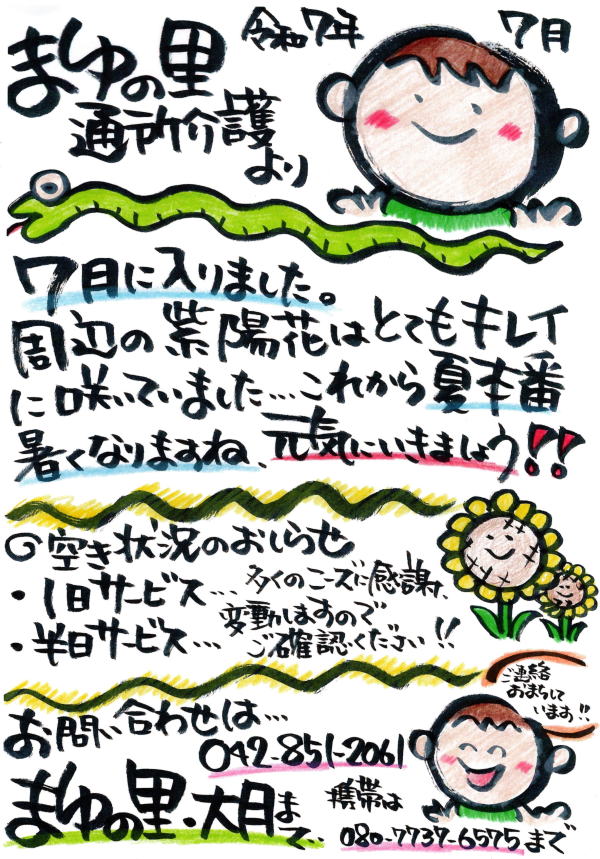 令和7年 7月
まゆの里
通所介護
より
7月に入りました。
周辺の紫陽花はとてもキレイ
に咲いていました…これから夏本番
暑くなりますね、元気にいきましょう!!
空き状況のおしらせ
・1日サービス… 多くのニーズに感謝、
・半日サービス… 変動しますので
ご確認ください!!
ご連絡
おまちして
います!!
お問い合わせは…
042-851-2061
まゆの里・大月まで…
携帯は
080-7737-6575まで